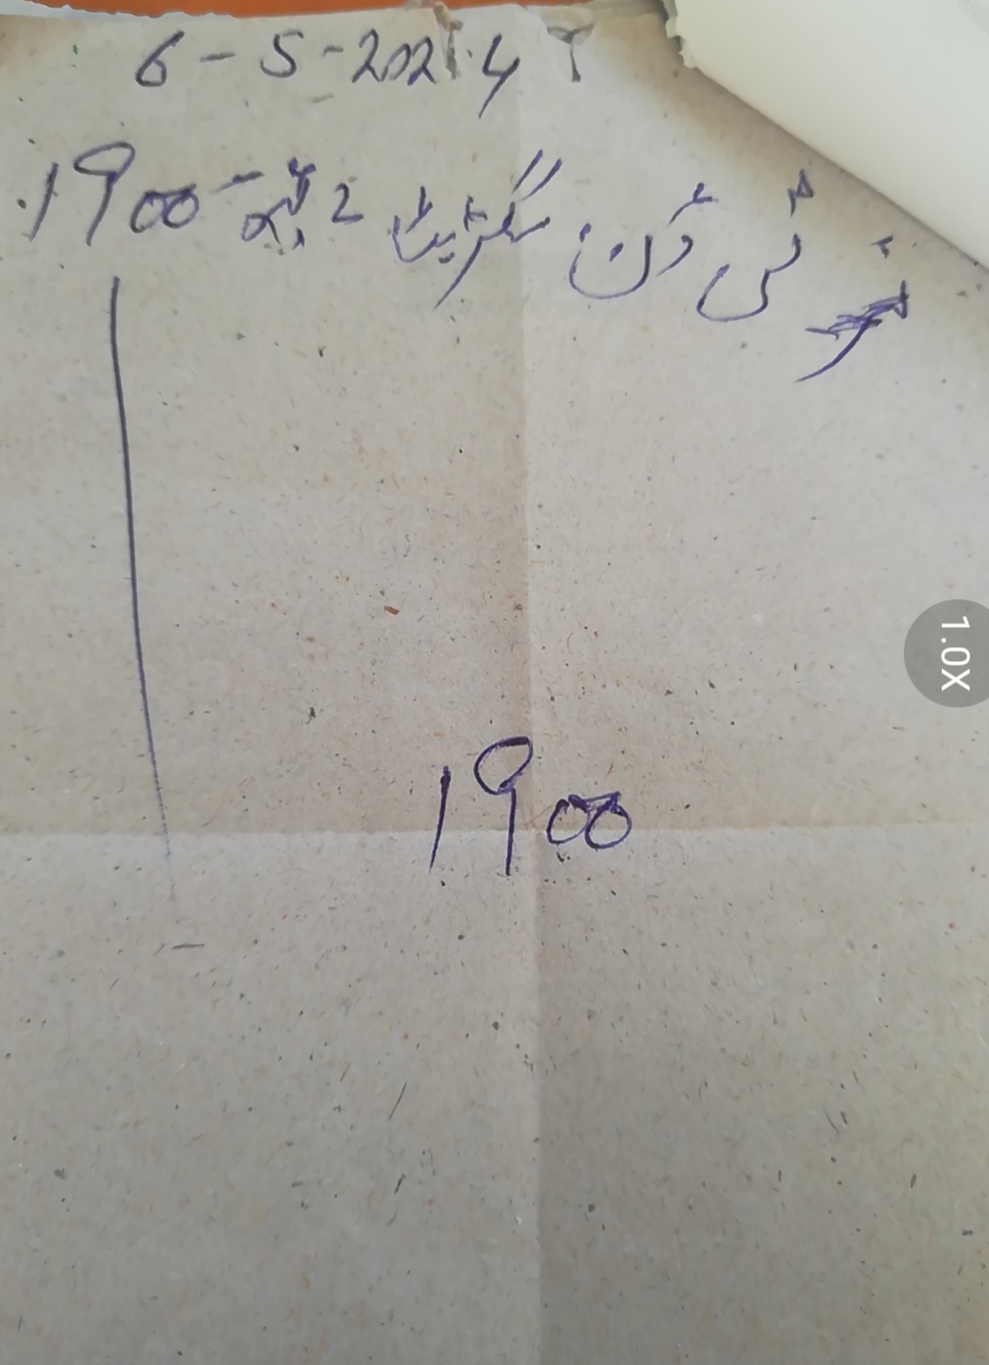 6-5-2024
ٹی ڈن سگریٹ 2 ڈبہ - 1900
1900
1.0X